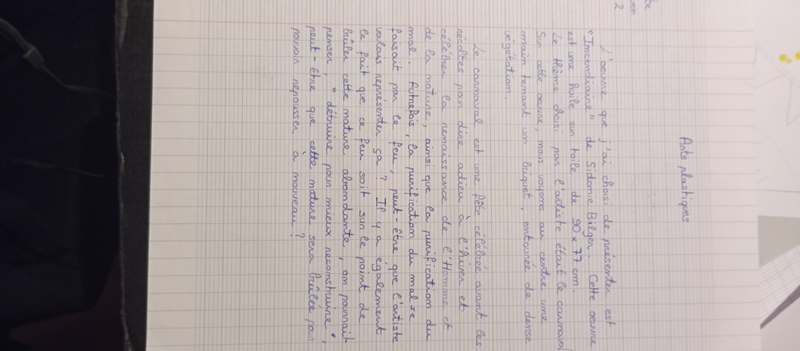 Arts plastiques
L'oeuvre que j'ai choisi de présenter est
"Incendiaire" de Sidonie Bilger. Cette oeuvre
est une huile sur toile de 90 x 77 cm.
Le thème choisi par l'artiste étant le carnaval
Sur cette oeuvre, nous voyons au centre une
main tenant un briquet, entourée de dense
végétation.
Le carnaval est une fête célébrée avant les
récoltes pour dire adieu à l'hiver et
célébrer la renaissance de l'Homme et
de la nature, ainsi que la purification du
mal. Autrefois, la purification du mal se
faisait par le feu, peut-être que l'artiste
voulais représenter ça ? Il y a également
le fait que ce feu soit sur le point de
brûler cette nature abondante, on pourrait
penser, "détruire pour mieux reconstruire"
peut-être que cette nature sera brûlée pour
pouvoir repousser à nouveau ?